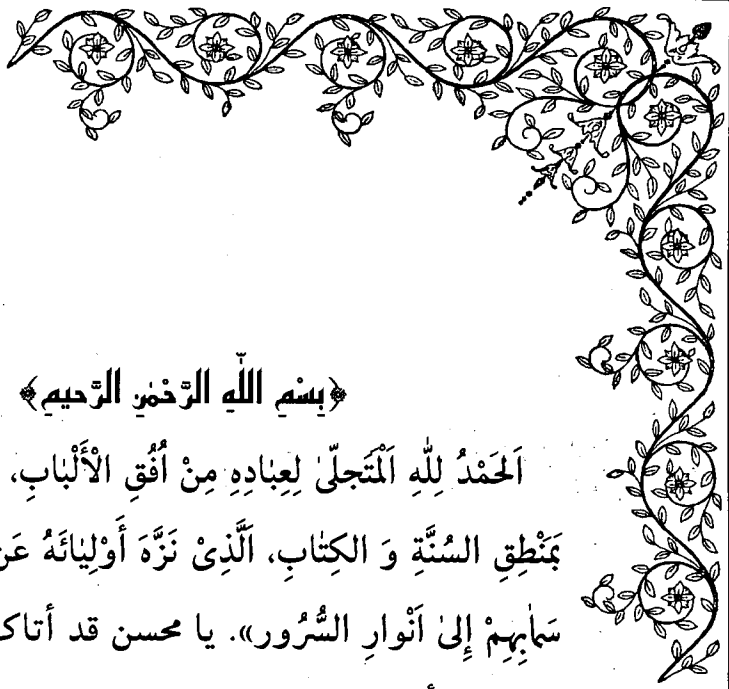 ﴿بِسْمِ اللّٰهِ الرَّحْمٰنِ الرَّحيمِ﴾
اَلحَمْدُ لِلّٰهِ اَلْمُتَجلّىٰ لِعِبٰادِهِ مِنْ اُفُقِ الْأَلْبٰابِ،
بَمَنْطِقِ السُنَّةِ وَ الكِتٰابِ، اَلَّذِىْ نَزَّهَ أَوْلِيٰائَهُ عَن
سَمٰابِهِمْ إِلىٰ اَنْوارِ السُّرُور». يا محسن قد أتاك